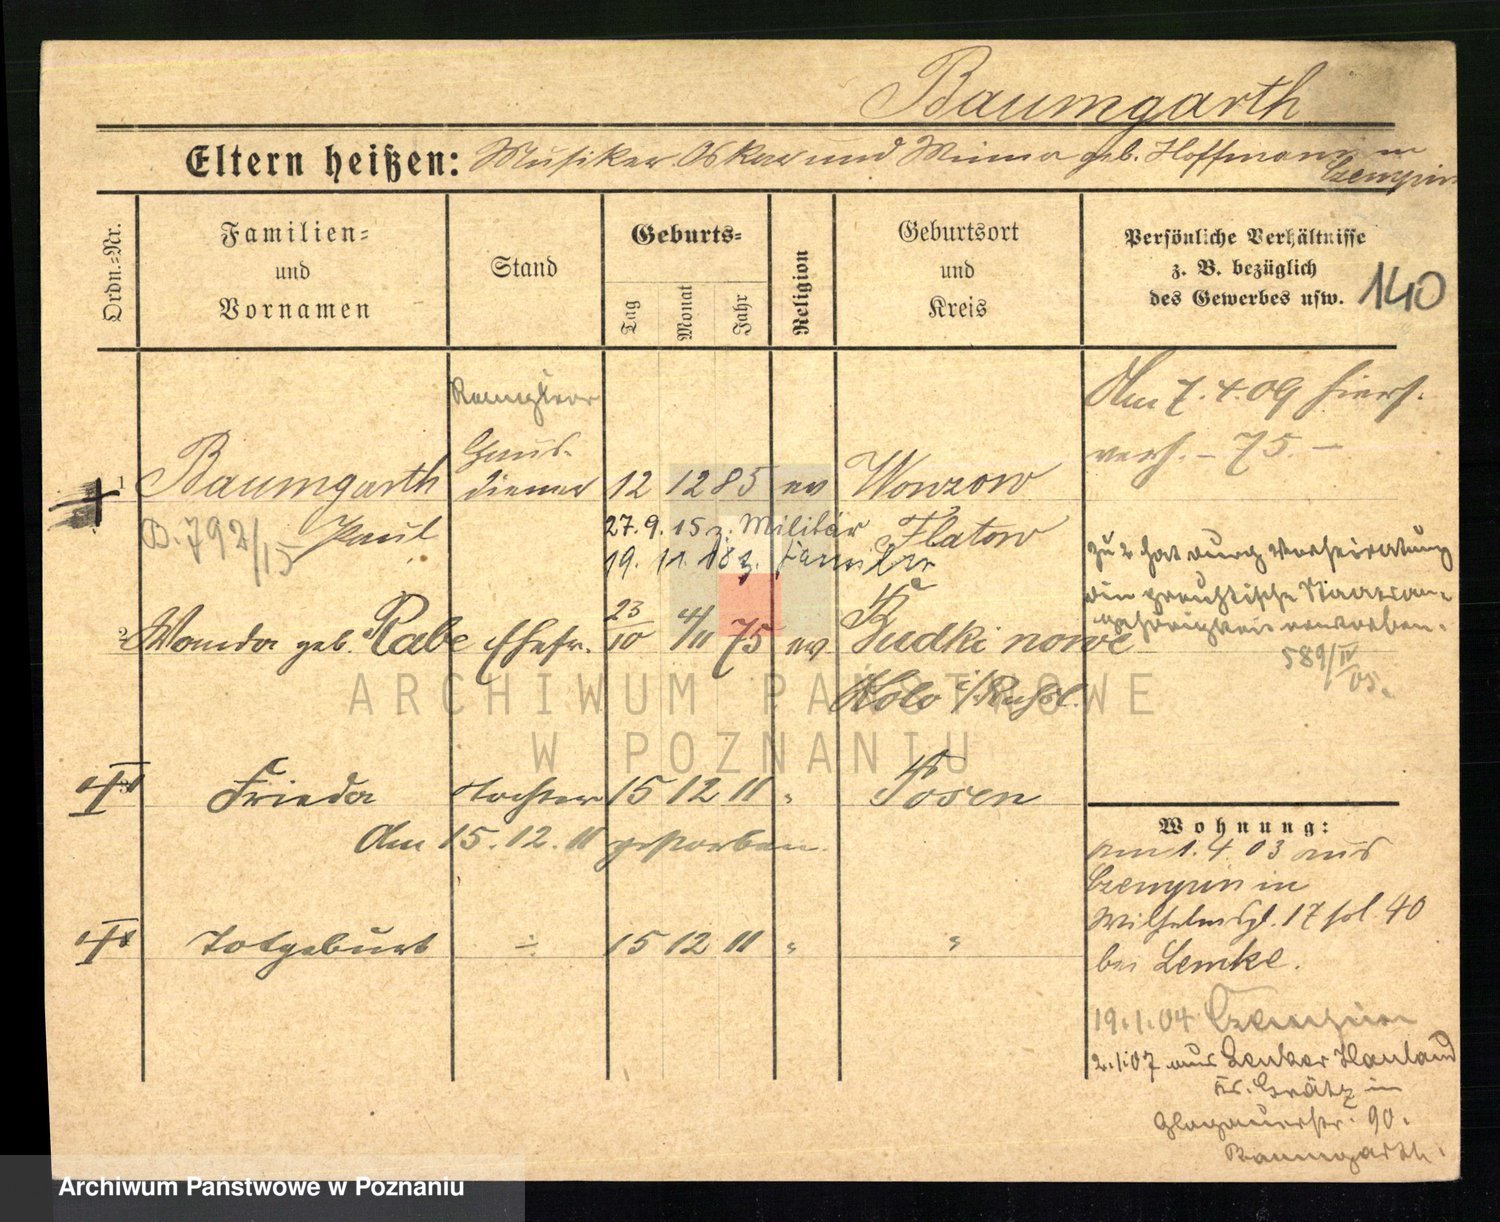 Baumgarth
Eltern heißen: Musiker Oskar und Minna geb. Hoffmann in
Czempin
Ordn.-Nr.
Familien-
und
Vornamen
Stand
Geburts-
Tag
Monat
Jahr
Religion
Geburtsort
und
Kreis
Persönliche Verhältnisse
z. B. bezüglich
des Gewerbes usw.
140
Am 7.4.09 hiers.
verh. - 75. -
Haus-
1 Baumgarth diener 12 12 85 ev Wonzow
B. 792/15 Paul 27.9.15 z. Militär Flatow
19.11.18 z. Familie
zu 2 hat durch Verheiratung
die preußische Staatsan-
gehörigkeit erworben.
589/IV 05.
2 Wanda geb. Rabe Ehefr. 23/10 4/11 75 ev. Budki nowe
Kr Kolo i/Russl.
Frieda Tochter 15 12 11 " Posen
Am 15.12.11 gestorben.
Totgeburt ÷ 15 12 11 " "
Wohnung:
am 1.4.03 aus
Czempin in
Wilhelmspl. 17 fol. 40
bei Lemke.
19.1.04 Czempin
2.1.07 aus Hauland
Kr. Grätz in
Glogauerstr. 90.
Baumgarth.
ARCHIWUM PAŃSTWOWE
W POZNANIU
Archiwum Państwowe w Poznaniu